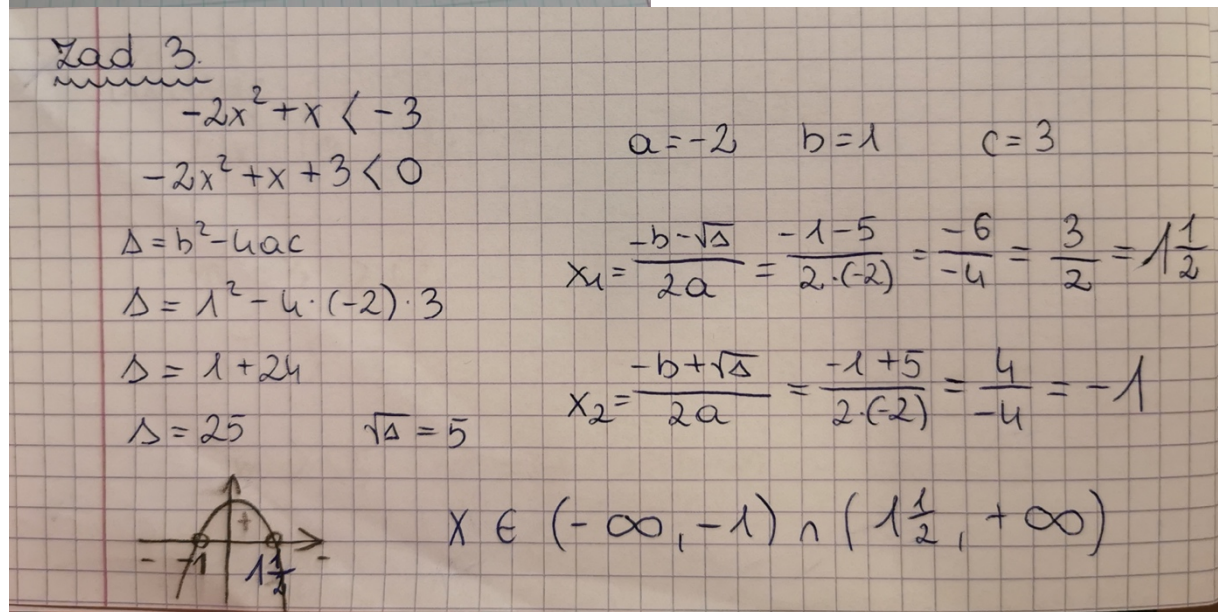 Zad 3.
-2x² + x < -3
-2x² + x + 3 < 0
Δ = b² - 4ac
Δ = 1² - 4 · (-2) · 3
Δ = 1 + 24
Δ = 25 √Δ = 5
a = -2 b = 1 c = 3
x₁ = (-b - √Δ)/(2a) = (-1 - 5)/(2 · (-2)) = (-6)/(-4) = 3/2 = 1 1/2
x₂ = (-b + √Δ)/(2a) = (-1 + 5)/(2 · (-2)) = 4/(-4) = -1
+
- -1 1 1/2 -
X ∈ (-∞, -1) ∩ (1 1/2, +∞)